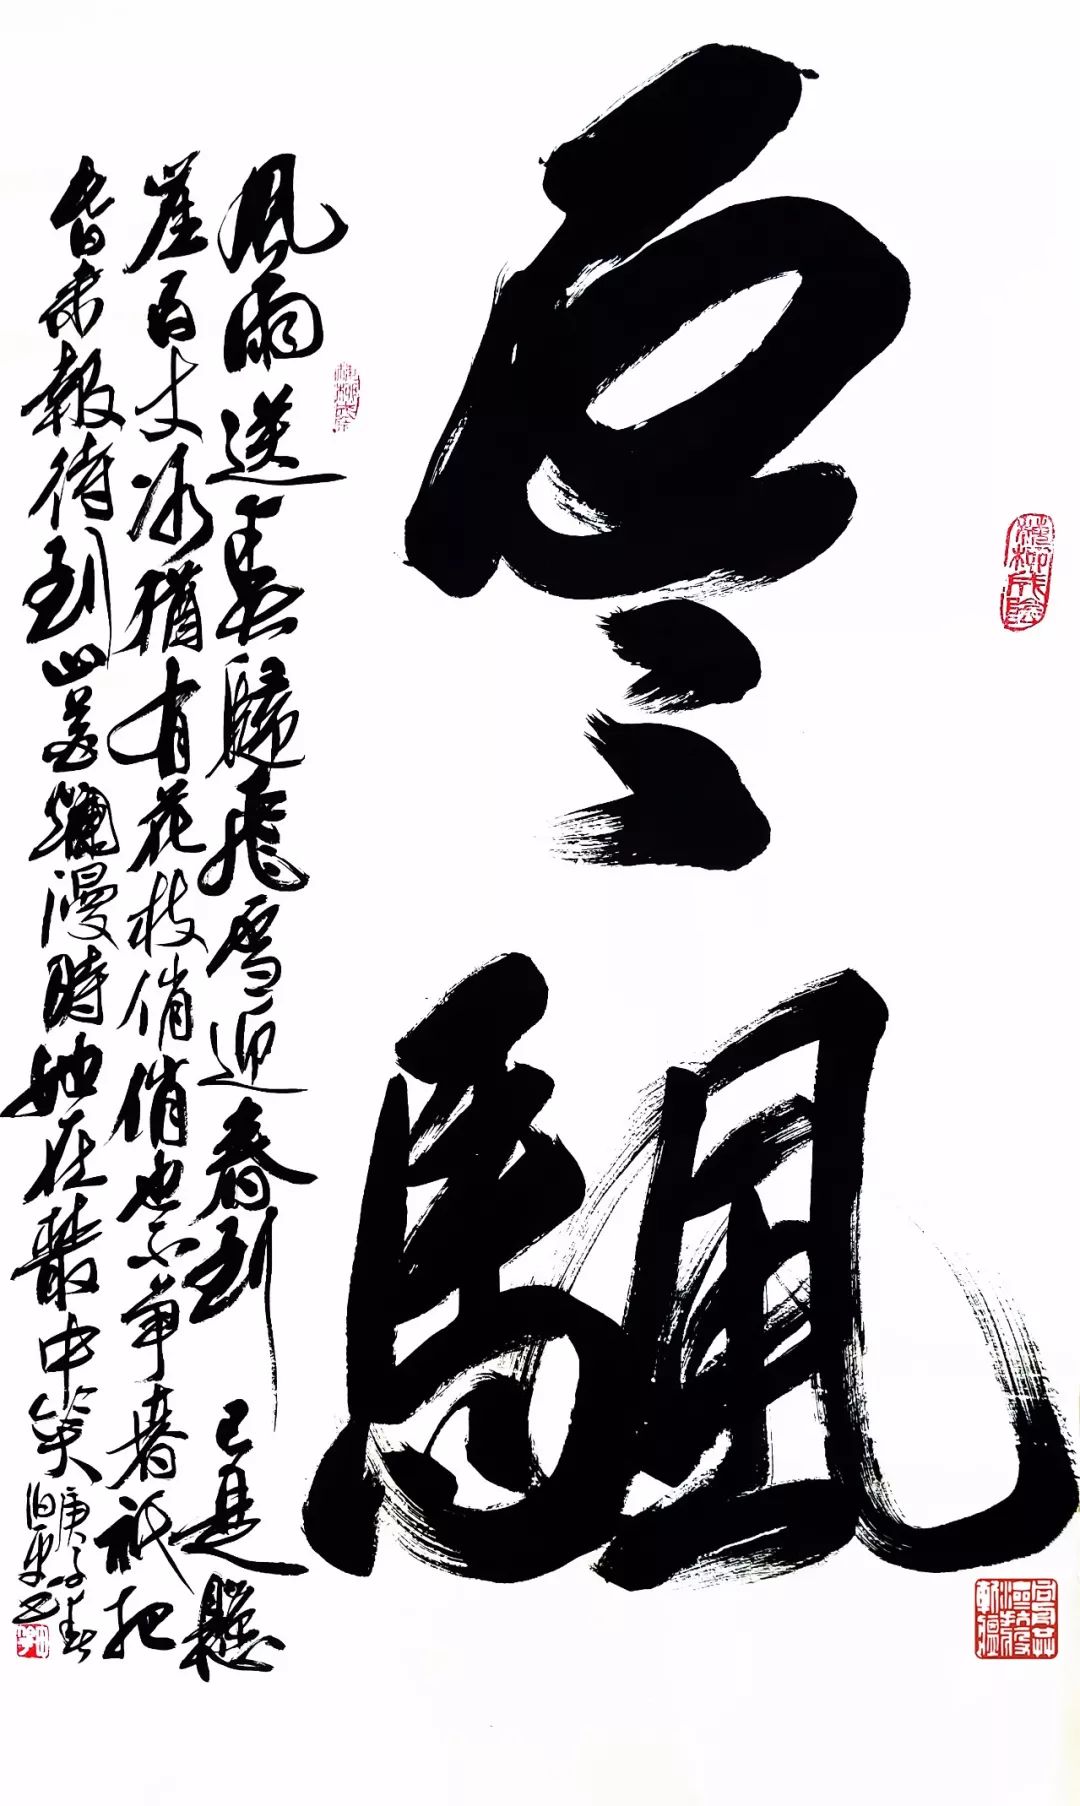 雲颿
風雨送春歸飛雪迎春到已是懸
崖百丈冰猶有花枝俏俏也不爭春祇把
春來報待到山花爛漫時她在叢中笑
庚子春